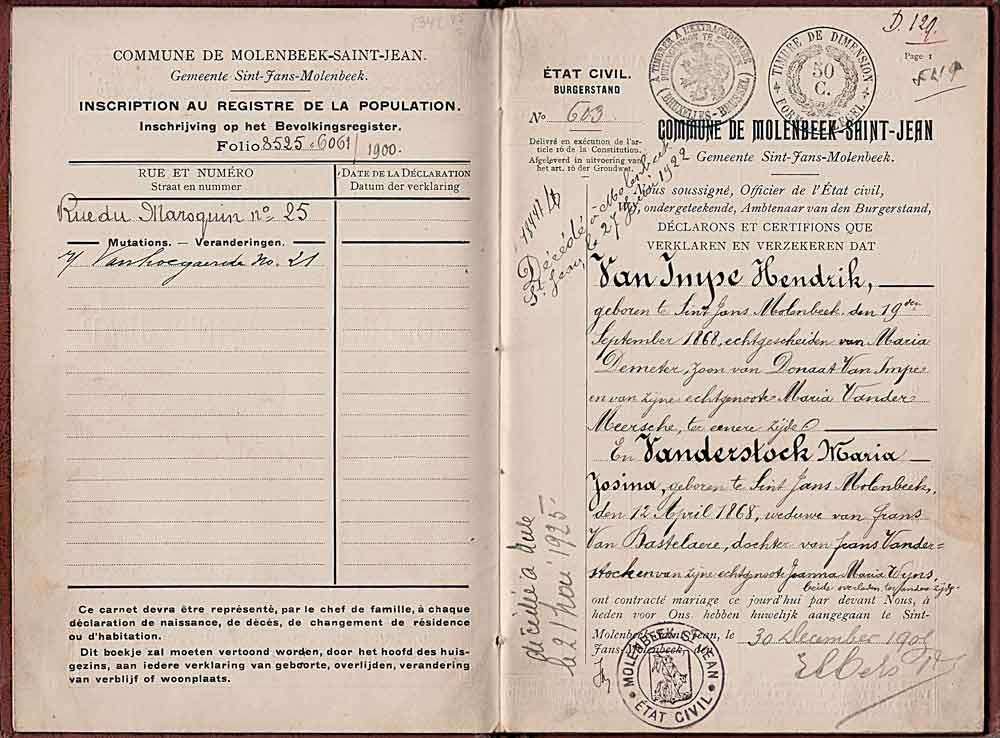 COMMUNE DE MOLENBEEK-SAINT-JEAN.
Gemeente Sint-Jans-Molenbeek.
INSCRIPTION AU REGISTRE DE LA POPULATION.
Inschrijving op het Bevolkingsregister.
Folio 8525 6061/1900.
RUE ET NUMÉRO
Straat en nummer
DATE DE LA DÉCLARATION
Datum der verklaring
Rue du Maroquin no 25
Mutations. — Veranderingen.
Vanhoegaerde No. 21
Ce carnet devra être représenté, par le chef de famille, à chaque
déclaration de naissance, de décès, de changement de résidence
ou d'habitation.
Dit boekje zal moeten vertoond worden, door het hoofd des huis-
gezins, aan iedere verklaring van geboorte, overlijden, verandering
van verblijf of woonplaats.
D. 129
Page 1
ÉTAT CIVIL.
BURGERSTAND
No 603
Délivré en exécution de l'ar-
ticle 16 de la Constitution.
Afgeleverd in uitvoering van
het art. 16 der Grondwet.
A TIMBRER A L'EXTRAORDINAIRE
(BRUXELLES-BRUSSEL)
TIMBRE DE DIMENSION
50
C.
COMMUNE DE MOLENBEEK-SAINT-JEAN
Gemeente Sint-Jans-Molenbeek.
Nous soussigné, Officier de l'État civil,
Wij, ondergeteekende, Ambtenaar van den Burgerstand,
DÉCLARONS ET CERTIFIONS QUE
VERKLAREN EN VERZEKEREN DAT
Van Impe Hendrik,
geboren te Sint Jans Molenbeek, den 19den
September 1868, echtgescheiden van Maria
Demeter, zoon van Donaat Van Impe
en van zijne echtgenoote Maria Vander
Meersche, ter eenere zijde
En Vanderstock Maria
Josina, geboren te Sint Jans Molenbeek,
den 12 April 1868, weduwe van frans
Van Bastelaere, dochter van frans Vander=
stock en van zijne echtgenoote Joanna Maria Wyns,
beide overleden ter andere zijde
ont contracté mariage ce jourd'hui par devant Nous, à
heden voor Ons hebben huwelijk aangegaan te Sint-
Molenbeek-Saint-Jean, le
Jans-Molenbeek, den
30 December 190
MOLENBEEK ST JEAN
ÉTAT CIVIL
Décédé à Molenbeek
St. Jean, le 27 1922
décédé à
le 21 1925